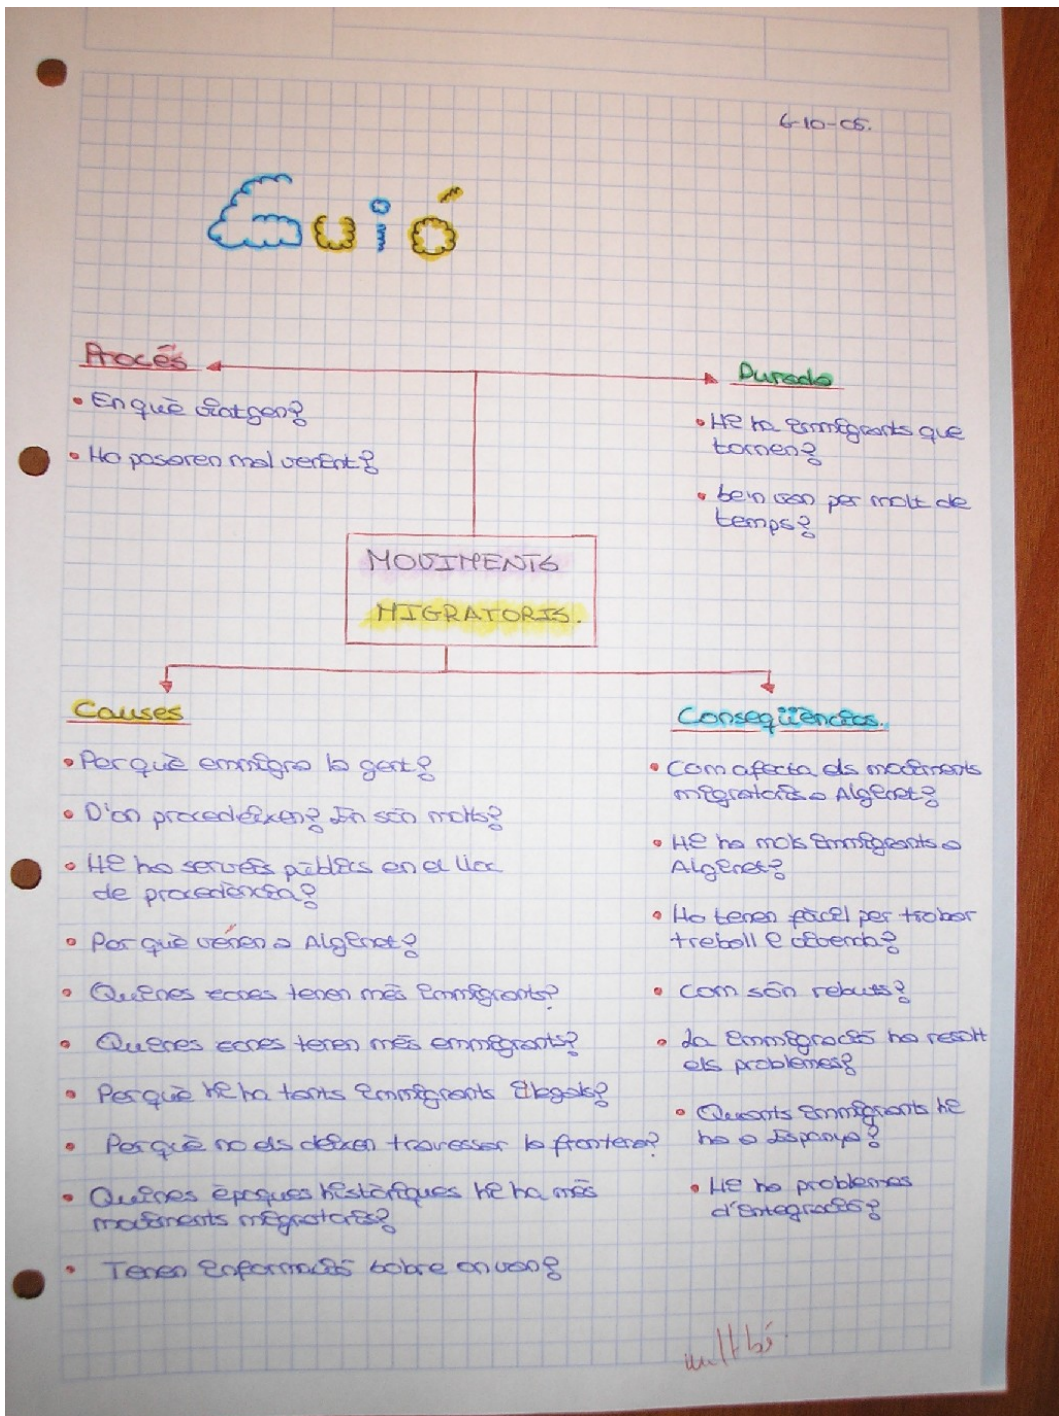 6-10-05.
Guió
Procés
• En què viatgen?
• Ho passaren mal venint?
Durada
• Hi ha immigrants que
tornen?
• be'n van per molt de
temps?
MOVIMENTS
MIGRATORIS.
Causes
• Per què emmigra la gent?
• D'on procedeixen? En són molts?
• Hi ha serveis públics en el lloc
de procedència?
• Per què vénen a Alginet?
• Quines zones tenen més immigrants?
• Quines zones tenen més emmigrants?
• Perquè hi ha tants immigrants il·legals?
• Perquè no els deixen travessar la frontera?
• Quines èpoques històriques hi ha més
moviments migratoris?
• Tenen informació sobre on van?
Conseqüències.
• Com afecta els moviments
migratoris a Alginet?
• Hi ha molts immigrants a
Alginet?
• Ho tenen fàcil per trobar
treball i vivenda?
• Com són rebuts?
• La immigració ha resolt
els problemes?
• Quants immigrants hi
ha a Espanya?
• Hi ha problemes
d'integració?
molt bé.